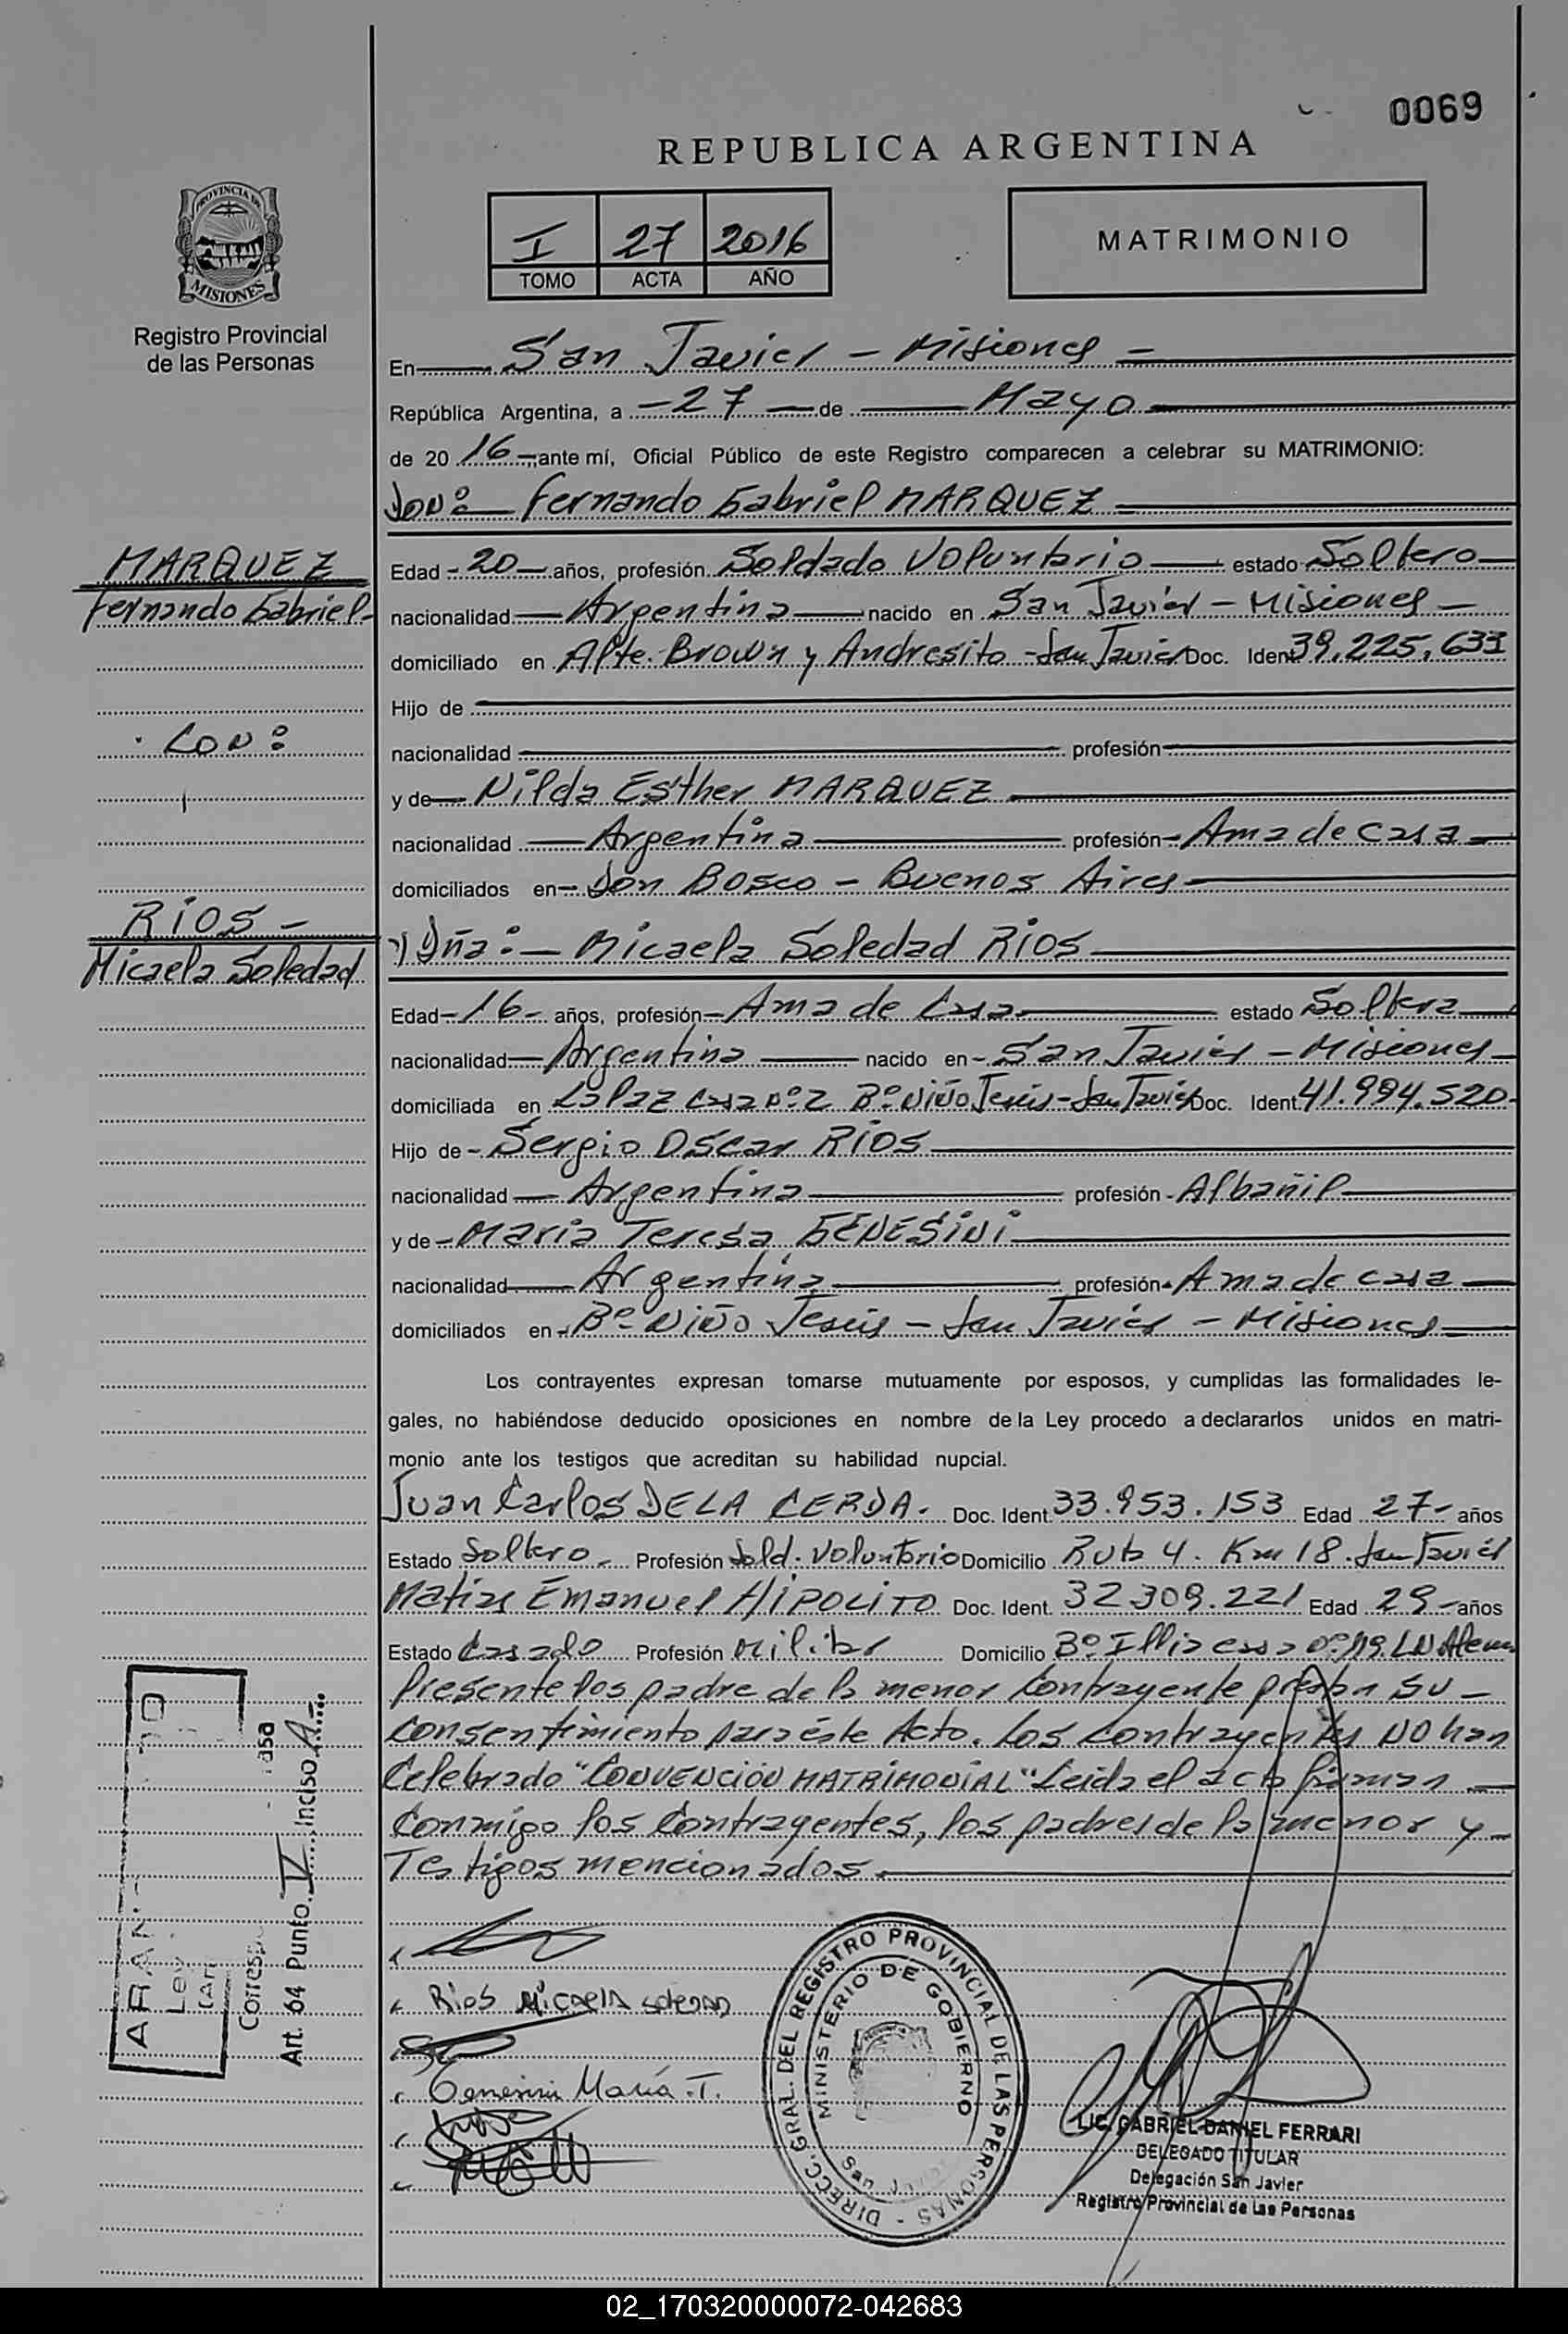 0069
REPUBLICA ARGENTINA
I 27 2016
TOMO ACTA AÑO
MATRIMONIO
PROVINCIA DE
MISIONES
Registro Provincial
de las Personas
En San Javier - Misiones -
República Argentina, a -27 - de Mayo
de 20 16 ante mí, Oficial Público de este Registro comparecen a celebrar su MATRIMONIO:
DON: Fernando Gabriel MARQUEZ
MARQUEZ
Fernando Gabriel-
CON:
RIOS -
Micaela Soledad
Edad - 20 - años, profesión Soldado Voluntario estado Soltero
nacionalidad Argentina nacido en San Javier - Misiones -
domiciliado en Alte. Brown y Andresito - San Javier Doc. Ident 39.225.633
Hijo de
nacionalidad profesión
y de Nilda Esther MARQUEZ
nacionalidad Argentina profesión - Ama de casa
domiciliados en - Don Bosco - Buenos Aires
Y Dña: - Micaela Soledad RIOS
Edad - 16 - años, profesión - Ama de Casa estado Soltera
nacionalidad Argentina nacido en - San Javier - Misiones
domiciliada en La Paz casa Nº 2 Bº Niño Jesús - San Javier Doc. Ident. 41.994.520-
Hijo de - Sergio Oscar RIOS
nacionalidad Argentina profesión - Albañil
y de - Maria Teresa GENESINI
nacionalidad Argentina profesión - Ama de casa
domiciliados en - Bº Niño Jesús - San Javier - Misiones
Los contrayentes expresan tomarse mutuamente por esposos, y cumplidas las formalidades le-
gales, no habiéndose deducido oposiciones en nombre de la Ley procedo a declararlos unidos en matri-
monio ante los testigos que acreditan su habilidad nupcial.
Juan Carlos DE LA CERDA. Doc. Ident. 33.953.153 Edad 27- años
Estado Soltero - Profesión Sold. Voluntario Domicilio Ruta 4. Km 18. San Javier
Matias Emanuel HIPOLITO Doc. Ident. 32.309.221 Edad 29- años
Estado Casado Profesión Militar Domicilio Bº Illia casa Nº 119. LN Alem
Presente los padre de la menor Contrayente prestan su -
consentimiento para éste Acto. Los contrayentes NO han
Celebrado "CONVENCIÓN MATRIMONIAL" Leida el acta firman
Conmigo los Contrayentes, los padres de la menor y -
Testigos mencionados.
Rios Micaela Soledad
Genesini María T.
ARAN
Ley
Art. 64 Punto IV Inciso A
DIRECC. GRAL. DEL REGISTRO PROVINCIAL DE LAS PERSONAS -
MINISTERIO DE GOBIERNO
San
LIC. GABRIEL DANIEL FERRARI
DELEGADO TITULAR
Delegación San Javier
Registro Provincial de las Personas
02_170320000072-042683